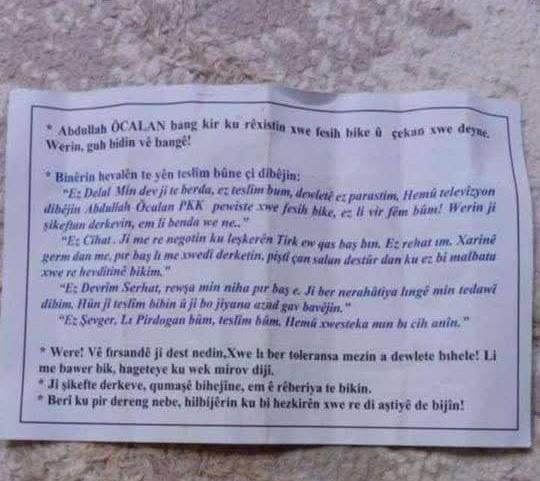 * Abdullah ÖCALAN bang kir ku rêxistin xwe fesih bike û çekan xwe deyne.
Werin, guh bidin vê bangê!
* Binêrin hevalên te yên teslîm bûne çi dibêjin:
"Ez Delal Min dev ji te berda, ez teslîm bum, dewletê ez parastim, Hemû televîzyon
dibêjin Abdullah Öcalan PKK pewiste xwe fesih bike, ez li vir fêm bûm! Werin ji
şikeftan derkevin, em li benda we ne.."
"Ez Cîhat. Ji me re negotin ku leşkerên Tirk ew qas baş bın. Ez rehat ım. Xarinê
germ dan me, pır baş lı me xwedî derketin, piştî çan salan destûr dan ku ez bi malbata
xwe re hevdîtinê bikim."
"Ez Devrîm Serhat, rewşa min niha pır baş e. Ji ber nerahâtiya lıngê min tedawî
dibim. Hûn jî teslîm bibin û ji bo jiyana azad gav bavêjin."
"Ez Şevger, Lı Pirdogan bûm, teslîm bûm. Hemû xwesteka mın bı cih anîn."
* Were! Vê fırsandê ji dest nedin,Xwe lı ber toleransa mezin a dewlete bıhele! Li
me bawer bik, hageteye ku wek mirov dijî.
* Ji şikefte derkeve, qumaşê bihejîne, em ê rêberiya te bikin.
* Berî ku pir dereng nebe, hilbijêrin ku bi hezkirên xwe re di aştiyê de bijîn!